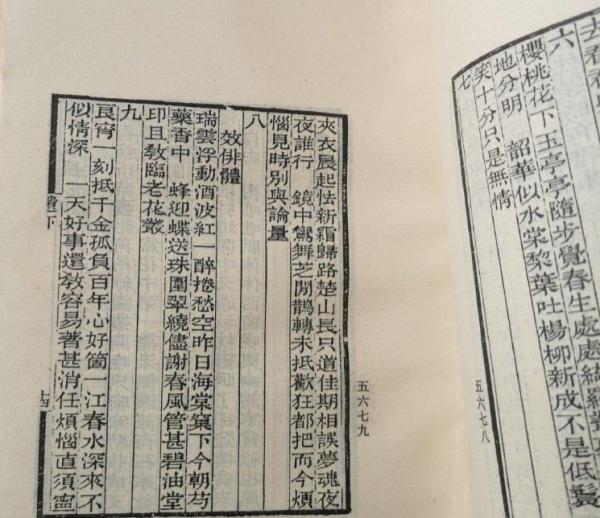 六
櫻桃花下玉亭亭隨步覺春生處處
地分明 韶華似水棠梨葉吐楊柳新成不是低鬟
笑十分只是無情
七
五六七八
夾衣晨起怯新霜歸路楚山長只道佳期相誤夢魂夜
夜誰行 鏡中鸞舞芝閒鵲轉未抵歡狂都把而今煩
惱見時別與論量
八
效俳體
瑞雲浮動酒波紅一醉捲愁空昨日海棠窠下今朝芍
藥香中 蜂迎蝶送珠圍翠繞儘謝春風管甚碧油堂
印且教臨老花叢
九
良宵一刻抵千金孤負百年心好箇一江春水深來不
似情深 一天好事還教容易著甚消任煩惱直須寧
下
五六七九